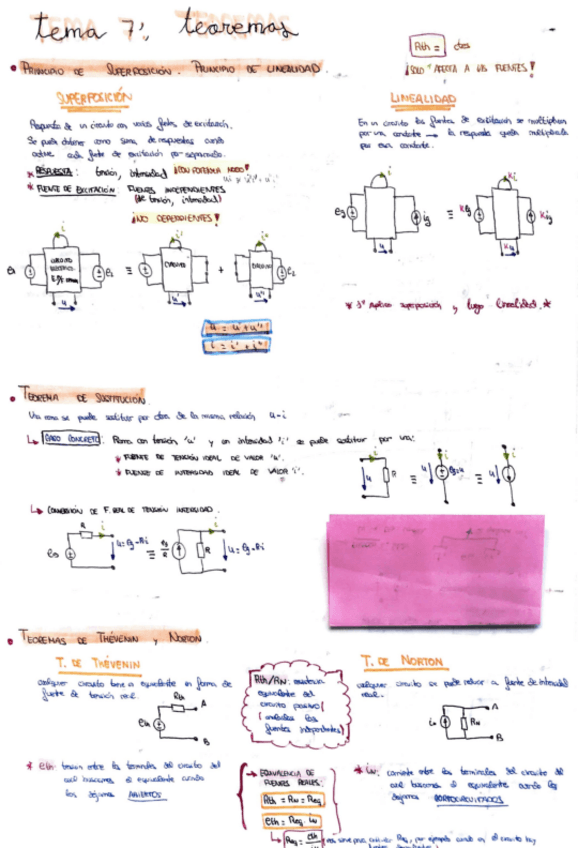 tema 7: teoremas
Rth = dos
¡SOLO AFECTA A LAS FUENTES!
• PRINCIPIO DE SUPERPOSICIÓN. PRINCIPIO DE LINEALIDAD.
SUPERPOSICIÓN
Respuesta de un circuito con varias fuentes de excitación.
Se puede obtener como suma de respuestas cuando
actúe cada fuente de excitación por separado.
* RESPUESTA: tensión, intensidad ¡CON POTENCIA NOOO!
* FUENTE DE EXCITACIÓN: FUENTES INDEPENDIENTES
(de tensión, intensidad)
¡NO DEPENDIENTES!
LINEALIDAD
En un circuito las fuentes de excitación se multiplican
por una constante → la respuesta queda multiplicada
por esa constante.
i
e₁
CIRCUITO
e₂
u
≡
i'
CIRCUITO
u'
+
i''
CIRCUITO
e₂
u''
i
eg
ig
u
≡
Ki
Keg
Kig
Ku
u = u' + u''
i = i' + i''
* 1º Aplico superposición y luego linealidad. *
• TEOREMA DE SUSTITUCIÓN.
Una rama se puede sustituir por otra de la misma relación u-i
↳ CASO CONCRETO: Rama con tensión 'u' y con intensidad 'i' se puede sustituir por una:
* FUENTE DE TENSIÓN IDEAL DE VALOR 'u'.
* FUENTE DE INTENSIDAD IDEAL DE VALOR 'i'.
i
u
R
≡
i
u
eg=u
≡
u
i
↳ CONVERSIÓN DE F. REAL DE TENSIÓN INTENSIDAD.
R
i
eg
u = eg - Ri
≡
eg/R
R
i
u = eg - Ri
• TEOREMAS DE THÉVENIN Y NORTON.
T. DE THÉVENIN
cualquier circuito tiene su equivalente en forma de
fuente de tensión real.
Rth
A
eth
B
Rth/RN: resistencia
equivalente del
circuito pasivo
(anuladas las
fuentes independientes)
T. DE NORTON
cualquier circuito se puede reducir a fuente de intensidad
real.
A
iN
RN
B
* eth: tensión entre los terminales del circuito del
cual buscamos el equivalente cuando
los dejamos ABIERTOS
→ EQUIVALENCIA DE
FUENTES REALES:
Rth = RN = Req
eth = Req · iN
↳ Req = eth/iN
nos sirve para calcular Req, por ejemplo cuando en el circuito hay
* iN: corriente entre los terminales del circuito del
cual buscamos el equivalente cuando los
dejamos CORTOCIRCUITADOS